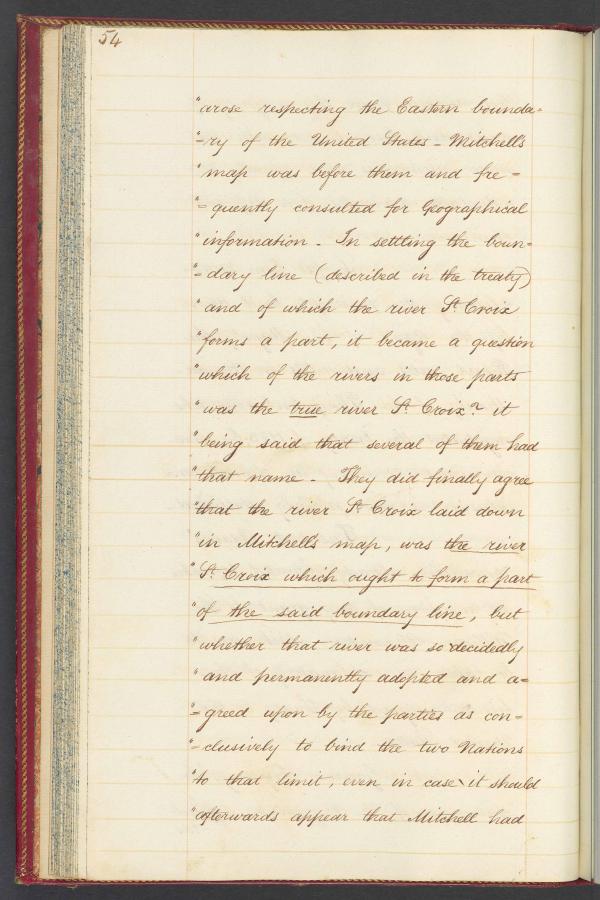 54
"arose respecting the Eastern bounda=
"-ry of the United States - Mitchell's
"map was before them and fre =
"= quently consulted for Geographical
"information - In settling the boun=
"= dary line (described in the treaty)
"and of which the river St Croix
"forms a part, it became a question
"which of the rivers in those parts
"was the true river St Croix? it
"being said that several of them had
"that name - They did finally agree
"that the river St Croix laid down
"in Mitchell's map, was the river
"St Croix which ought to form a part
"of the said boundary line, but
"whether that river was so decidedly
"and permanently adopted and a=
"= greed upon by the parties as con=
"= clusively to bind the two Nations
"to that limit, even in case it should
"afterwards appear that Mitchell had